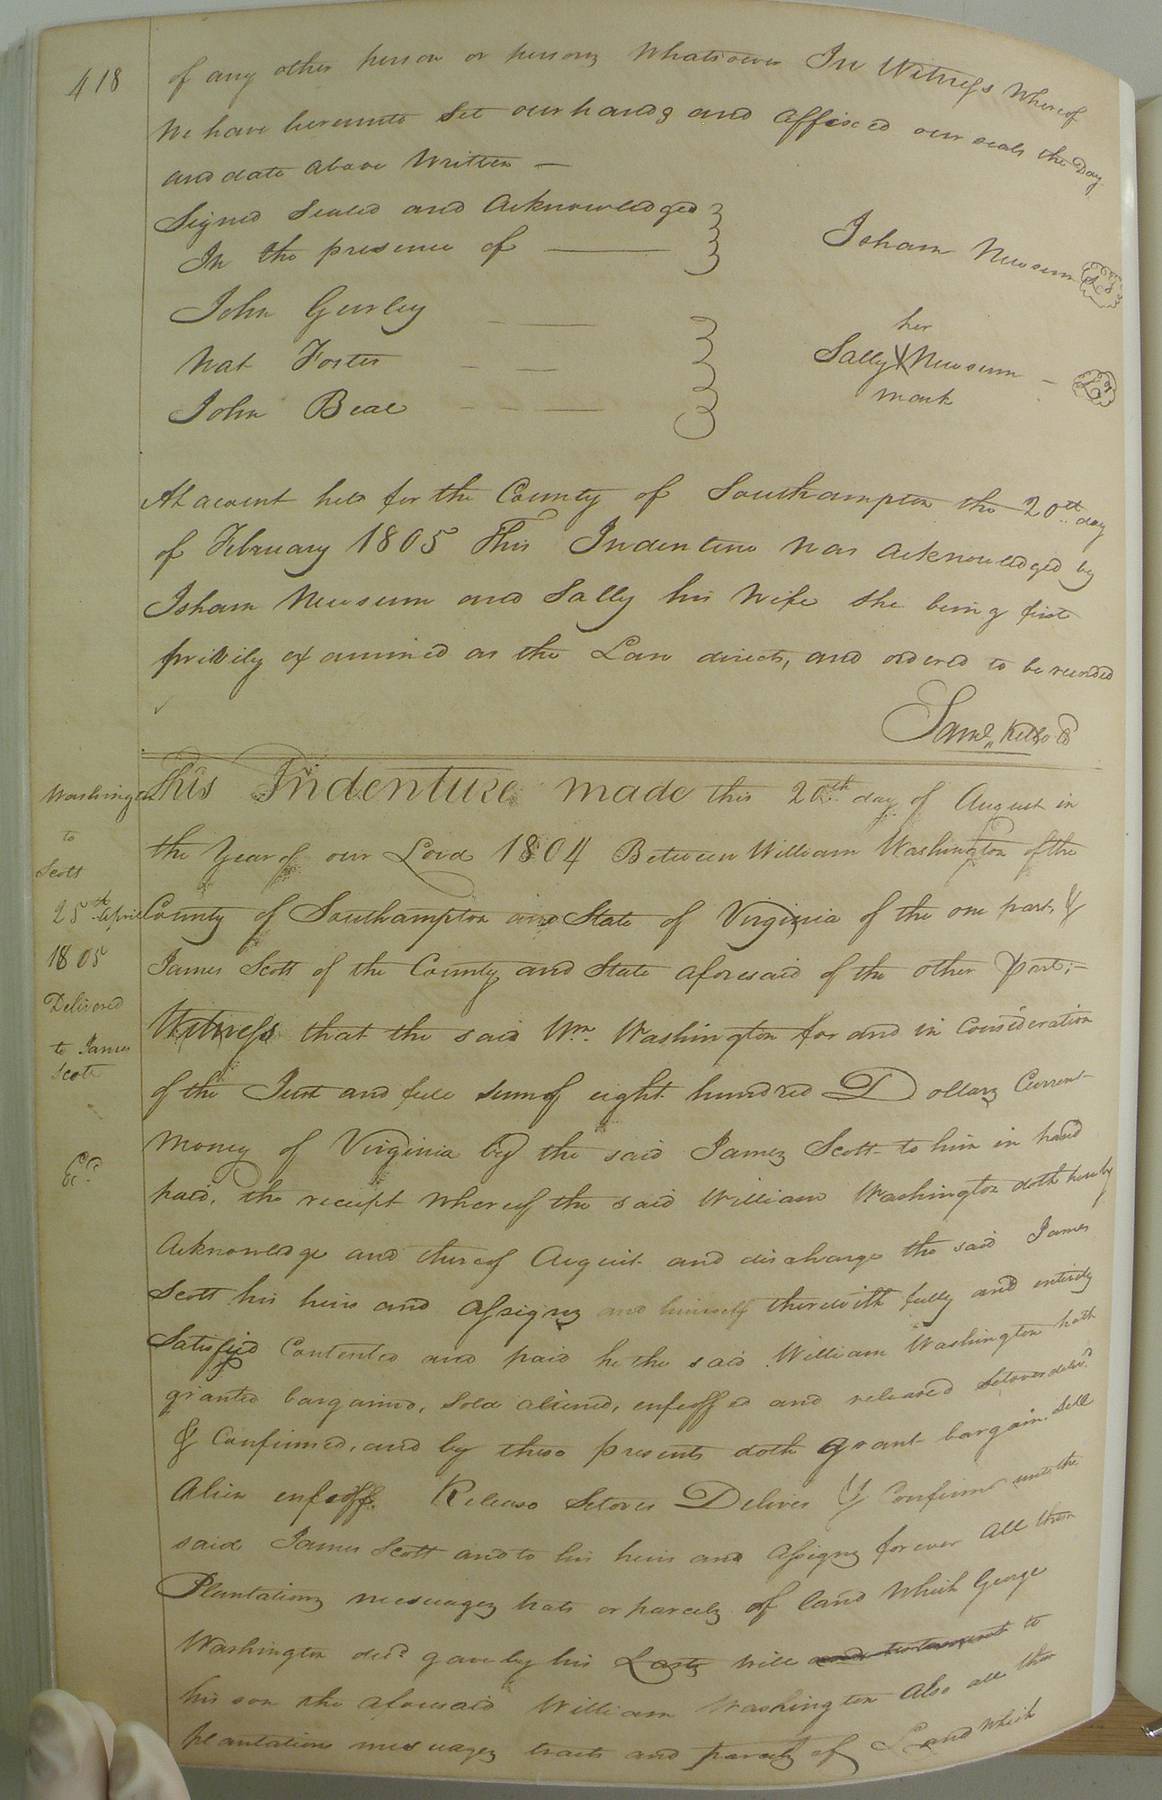 418
of any other person or persons whatsoever In Witness whereof
We have hereunto Set our hands and affixed our seals the Day
and date above Written —
Signed Sealed and Acknowledged
In the presence of —
Isham Newsum LS
John Gurley
Nat Foster
John Beal
her
Sally X Newsum - LS
mark
At a court held for the County of Southampton the 20th day
of February 1805 This Indenture was acknowledged by
Isham Newsum and Sally his Wife she being first
privily examined as the Law directs, and ordered to be recorded
Saml. Kello
Washington
to
Scott
25th April
1805
Delivered
to James
Scott
This Indenture made this 20th day of August in
the Year of our Lord 1804 Between William Washington of the
County of Southampton and State of Virginia of the one part &
James Scott of the County and State aforesaid of the other part;—
Witness that the said Wm. Washington for and in Consideration
of the Just and full sum of eight hundred Dollars Current
Money of Virginia by the said James Scott to him in hand
paid, the receipt whereof the said William Washington doth hereby
Acknowledge and thereof Acquit and discharge the said James
Scott his heirs and assigns and himself therewith fully and entirely
Satisfied Contented and paid he the said William Washington hath
granted bargained, Sold aliened, enfeoffed and released Setover deliv.d
& Confirmed, and by these presents doth grant bargain, Sell
Alien enfeoff Release Setover Deliver & Confirm unto the
said James Scott and to his heirs and Assigns forever All those
Plantations messuages trats or parcels of land Which George
Washington decd. gave by his Last Will and testament to
his son the aforesaid William Washington Also all the
plantations messuages tracts and parcels of Land which